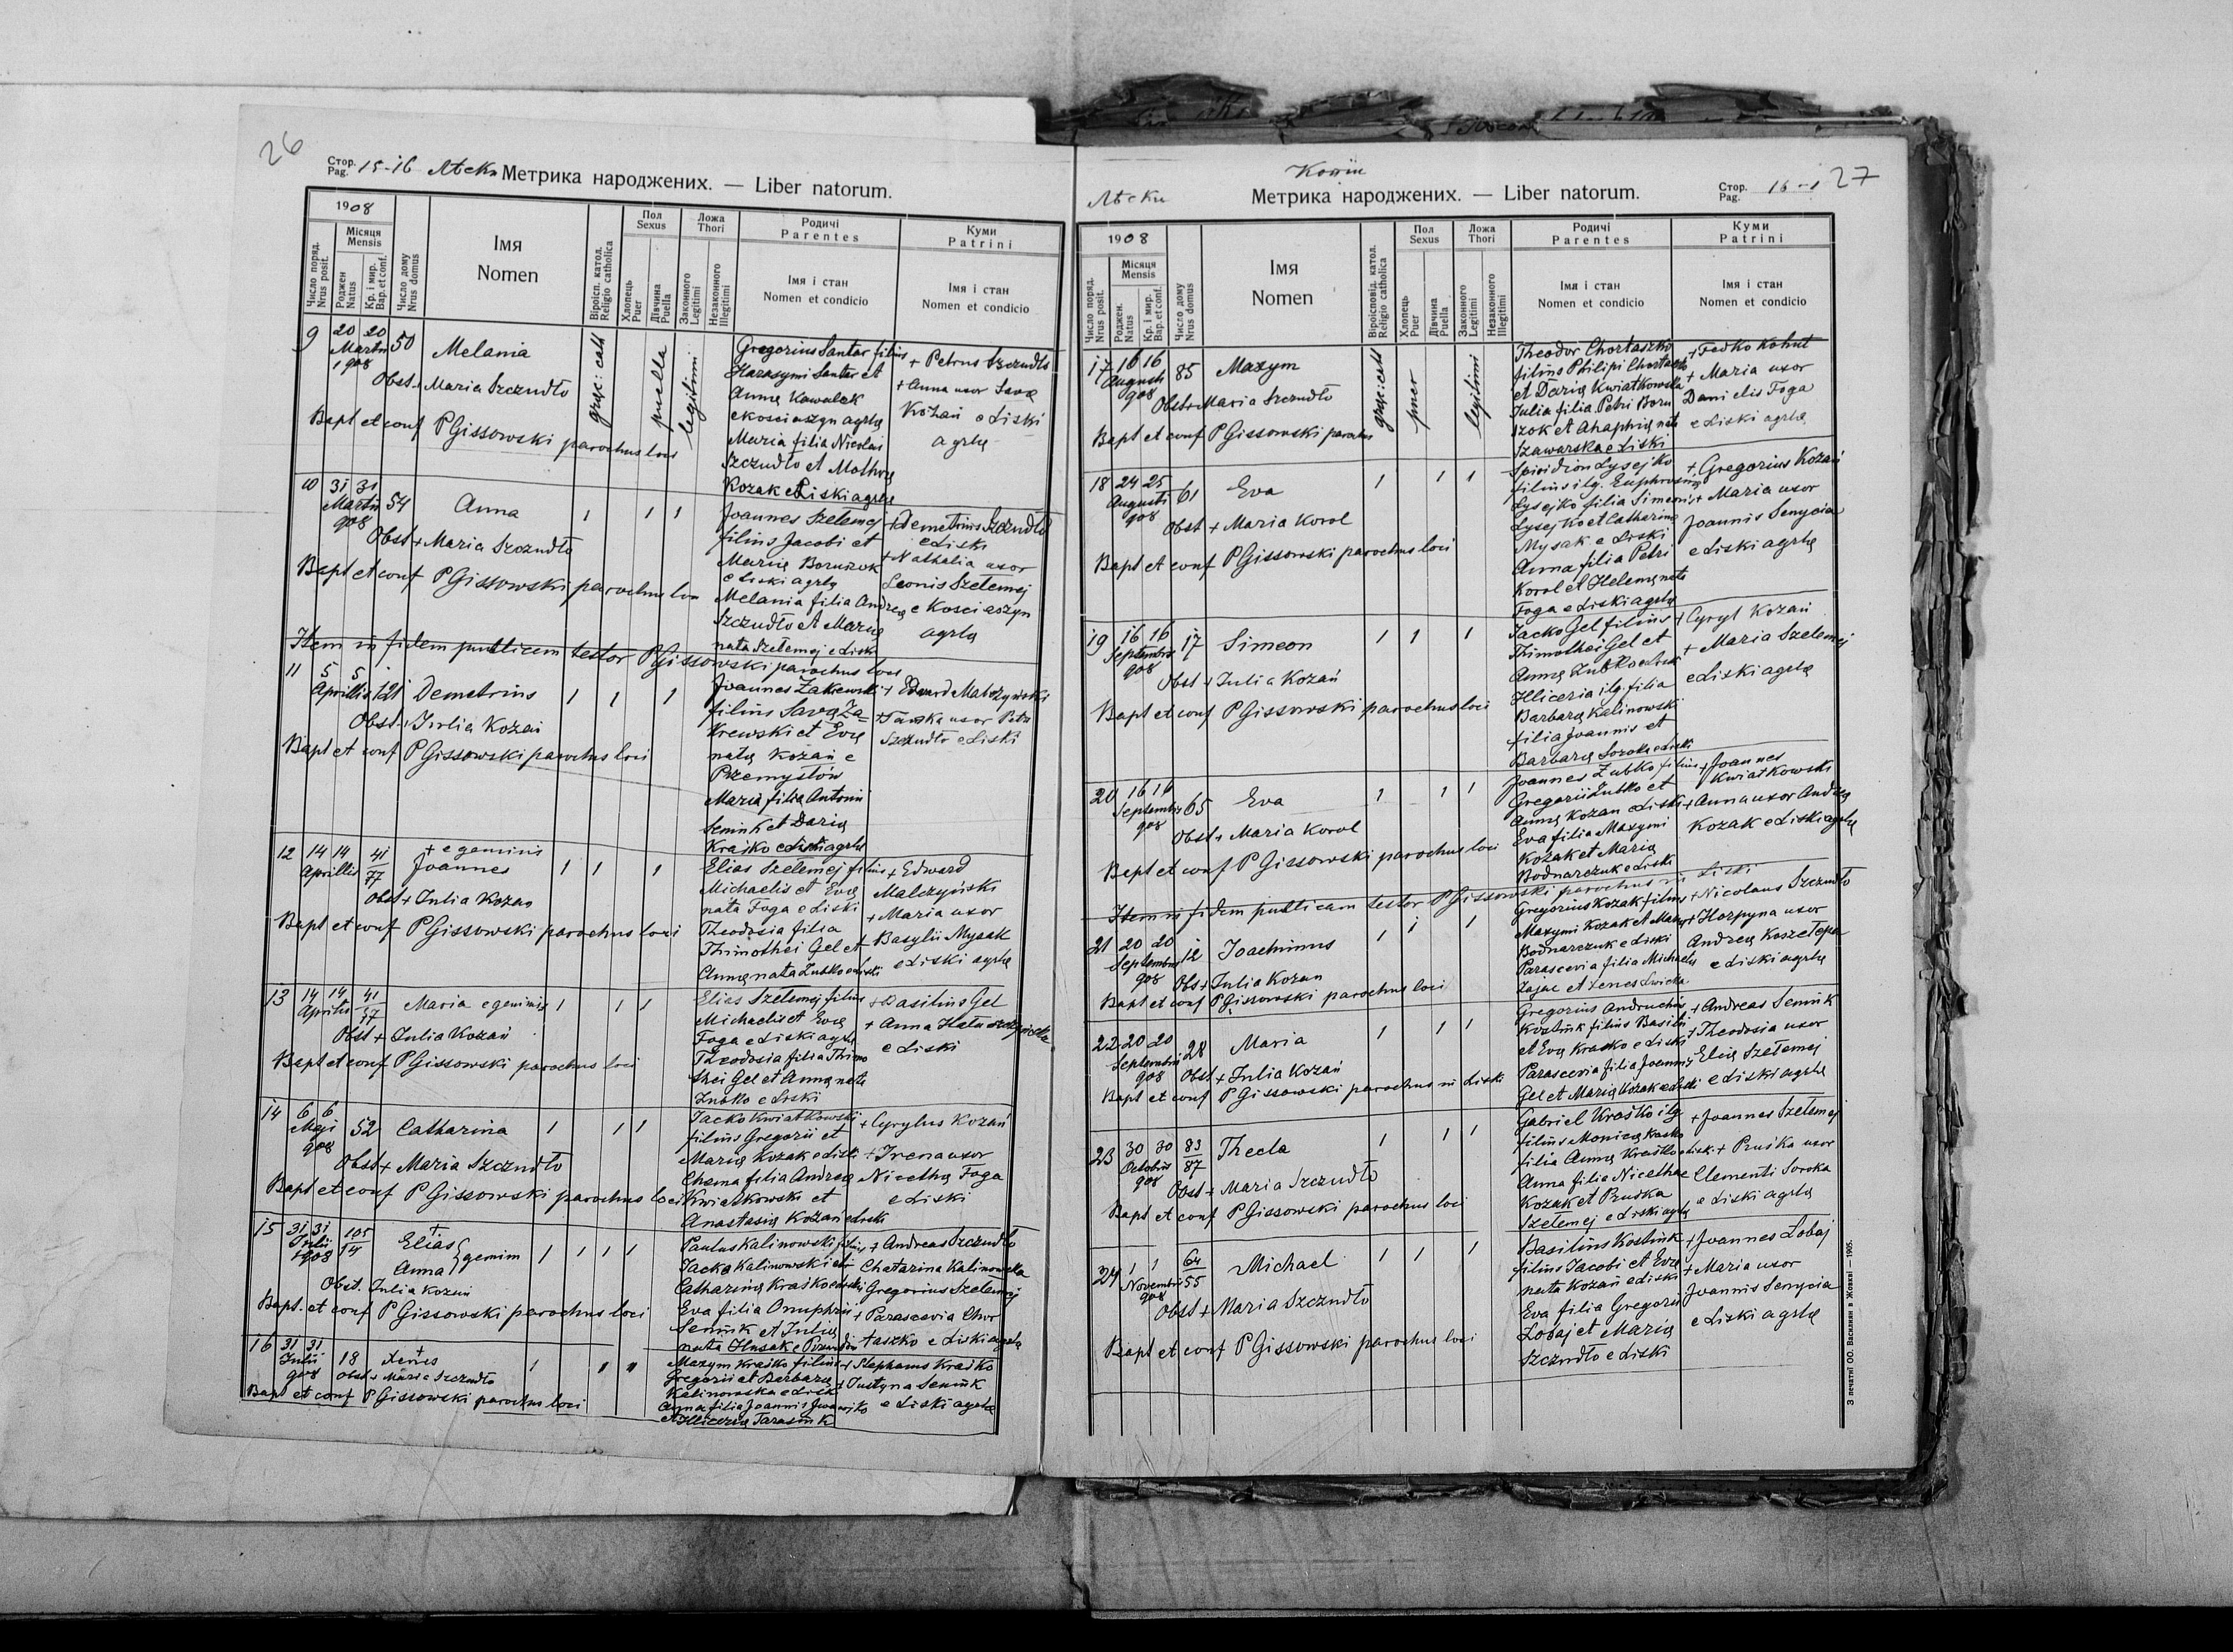 26
Стор. Pag. 15-16 Лѣски Метрика народжених. — Liber natorum.
1908
Число поряд. Nrus posit.
Місяця Mensis
Роджен Natus
Кр. і мир. Bap. et conf.
Число дому Nrus domus
Імя Nomen
Віроісп. катол. Religio catholica
Пол Sexus
Хлопець Puer
Дївчина Puella
Ложа Thori
Законного Legitimi
Незаконного Illegitimi
Родичі Parentes
Імя і стан Nomen et condicio
Куми Patrini
Імя і стан Nomen et condicio
9 20 20 Martii 1908 50 Melania
Obst. + Maria Szczudło
Bapt et conf P Gissowski parochus loci
gręc: cath puella legitimi
Gregorius Santar filius
Harasymi Santar et
Annę Kowalek
e kosciaszyn agrlę
Maria filia Nicolai
Szczudło et Mothrę
Kozak e Liski agrlę
+ Petrus Szczudło
+ Anna uxor Savę
Kożań e Liski
agrlę
10 31 31 Martii 908 54 Anna 1 1 1
Obst + Maria Szczudło
Bapt et conf P Gissowski parochus loci
Joannes Szełemej
filius Jacobi et
Marię Boruszok
e Liski agrlę
Melania filia Andreę
Szczudło et Marię
nata Szełemej e Liski
+ Demetrius Szczudło
e Liski
+ Nathalia uxor
Leonis Szełemej
e Kosciaszyn
agrlę
Item in fidem publicam testor P Gissowski parochus loci
11 5 5 Aprillis 121 Demetrius 1 1 1
Obst. + Julia Kozań
Bapt et conf P Gissowski parochus loci
Joannes Zakrewski
filius Savę Za=
krewski et Evę
natę Kożań e
Przemysłów
Maria filia Antonii
Seniuk et Darię
Kraśko e Liski agrlę
+ Edward Malczyński
+ Tauska uxor Petri
Szczudło e Liski
12 14 14 Aprillis 41/77 + e geminis
Joannes 1 1 1
Obst + Julia Kozan
Bapt et conf P Gissowski parochus loci
Elias Szełemej filius
Michaelis et Evę
nata Foga e Liski
Theodosia filia
Thimothei Gel et
Annę nata Zubko e Liski
+ Edward
Malczyński
+ Maria uxor
Basylii Mysak
e Liski agrlę
13 14 14 Aprilis 41/77 Maria e geminis 1 1 1
Obst + Julia Kozań
Bapt et conf P Gissowski parochus loci
Elias Szełemej filius
Michaelis et Evę
Foga e Liski agrlę
Theodosia filia Thimo
thei Gel et Annę nata
Zubko e Liski
+ Basilius Gel
+ Anna
e Liski
14 6 6 Maji 908 52 Catharina 1 1 1
Obst + Maria Szczudło
Bapt et conf P Gissowski parochus loci
Jacko Kwiatkowski
filius Gregorii et
Marię Kozak e Liski
Chema filia Andreę
Kwiatkowski et
Anastasię Kożań e Liski
+ Cyrylus Kozań
+ Irena uxor
Nicethę Foga
e Liski
15 31 31 Julii 1908 105/14 Elias
Anna } gemini 1 1 1 1
Obst. Julia Kozań
Bapt. et conf P Gissowski parochus loci
Paulus Kalinowski filius
Jacko Kalinowski et
Catharinę Kraśko e Liski
Eva filia Onuphrii
Seniuk et Julię
nata Husak e
+ Andreas Szczudło
Chatarina Kalinowska
Gregorius Szełemej
+ Parascevia Chor
taszko e Liski agrlę
16 31 31 Julii 908 18 Xenes 1 1 1
Obst + Maria Szczudło
Bapt et conf P Gissowski parochus loci
Maxym Kraśko filius
Gregorii et Barbarę
Kalinowska e Liski
Anna filia Joannis Iwaniko
et Hliceria Tarasiuk
+ Stephanus Kraśko
+ Justyna Seniuk
e Liski agrlę
Лѣски
Метрика народжених. — Liber natorum.
Стор. Pag. 16 27
1908
Число поряд. Nrus posit.
Місяця Mensis
Роджен. Natus
Кр. і мир. Bap. et conf.
Число дому Nrus domus
Імя Nomen
Віроісповід. катол. Religio catholica
Пол Sexus
Хлопець Puer
Дївчина Puella
Ложа Thori
Законного Legitimi
Незаконного Illegitimi
Родичі Parentes
Імя і стан Nomen et condicio
Куми Patrini
Імя і стан Nomen et condicio
17 16 16 Augusti 908 85 Maxym
Obst + Maria Szczudło
Bapt et conf P Gissowski parochus
gręc: cath puer legitimi
Theodor Chortaszko
filius Philipi Chortaszko
et Darię Kwiatkowska
Julia filia Petri Boru
szok et Ahaphię nata
Szawarska e Liski
+ Fedko Kohut
+ Maria uxor
Danielis Foga
e Liski agrlę
18 24 25 Augusti 908 61 Eva 1 1 1
Obst + Maria Korol
Bapt et conf P Gissowski parochus loci
Spiridion Lysejko
filius ilg. Euphrosinę
Lysejko filia Simeonis
Lysejko et Catharinę
Mysak e Liski
Anna filia Petri
Korol et Helenę nata
Foga e Liski agrlę
+ Gregorius Kozań
+ Maria uxor
Joannis Senycia
e Liski agrlę
19 16 16 Septembris 908 17 Simeon 1 1 1
Obst + Julia Kozań
Bapt et conf P Gissowski parochus loci
Jacko Gel filius
Thimothei Gel et
Annę Zubko e Liski
Hliceria ilg. filia
Barbarę Kalinowski
filia Joannis et
Barbarę Soroka e Liski
+ Cyryl Kozań
+ Maria Szełemej
e Liski agrlę
20 16 16 Septembris 908 65 Eva 1 1 1
Obst + Maria Korol
Bapt et conf P Gissowski parochus loci
Joannes Zubko filius
Gregorii Zubko et
Annę Kozan e Liski
Eva filia Maxymi
Kozak et Marię
Bodnarczuk e Liski
+ Joannes
Kwiatkowski
+ Anna uxor Andreę
Kozak e Liski agrlę
Item in fidem publicam testor P Gissowski parochus in Liski
21 20 20 Septembris 908 12 Joachimus 1 1 1
Obs + Julia Kozan
Bapt et conf P Gissowski parochus loci
Gregorius Kozak filius
Maxymi Kozak et Marię
Bodnarczuk e Liski
Parascevia filia Michaelis
Zajac et Xenes Lwicka
+ Nicolaus Szczudło
+ Horpyna uxor
Andreę Koszełepa
e Liski agrlę
22 20 20 Septembris 908 28 Maria 1 1 1
Obst + Julia Kozań
Bapt et conf P Gissowski parochus in Liski
Gregorius Andruchiw
Kostiuk filius Basilii
et Evę Krasko e Liski
Parascevia filia Joannis
Gel et Marię Kozak e Liski
+ Andreas Seniuk
+ Theodosia uxor
Elię Szełemej
e Liski agrlę
23 30 30 Octobris 908 83/87 Thecla 1 1 1
Obst + Maria Szczudło
Bapt et conf P Gissowski parochus loci
Gabriel Kraśko ilg
filius Monicę Krasko
filia Annę Kraśko e Liski
Anna filia Nicethae
Kozak et Pruśka
Szełemej e Liski agrlę
+ Joannes Szełemej
+ Pruśka uxor
Clementi Soroka
e Liski agrlę
24 1 1 Novembris 908 64/55 Michael 1 1 1
Obst + Maria Szczudło
Bapt et conf P Gissowski parochus loci
Basilius Kostiuk
filius Jacobi et Evę
nata Kozań e Liski
Eva filia Gregorii
Łobaj et Marię
Szczudło e Liski
+ Joannes Łobaj
+ Maria uxor
Joannis Senycia
e Liski agrlę
З печатнї ОО. Василиян в Жовкві — 1905.